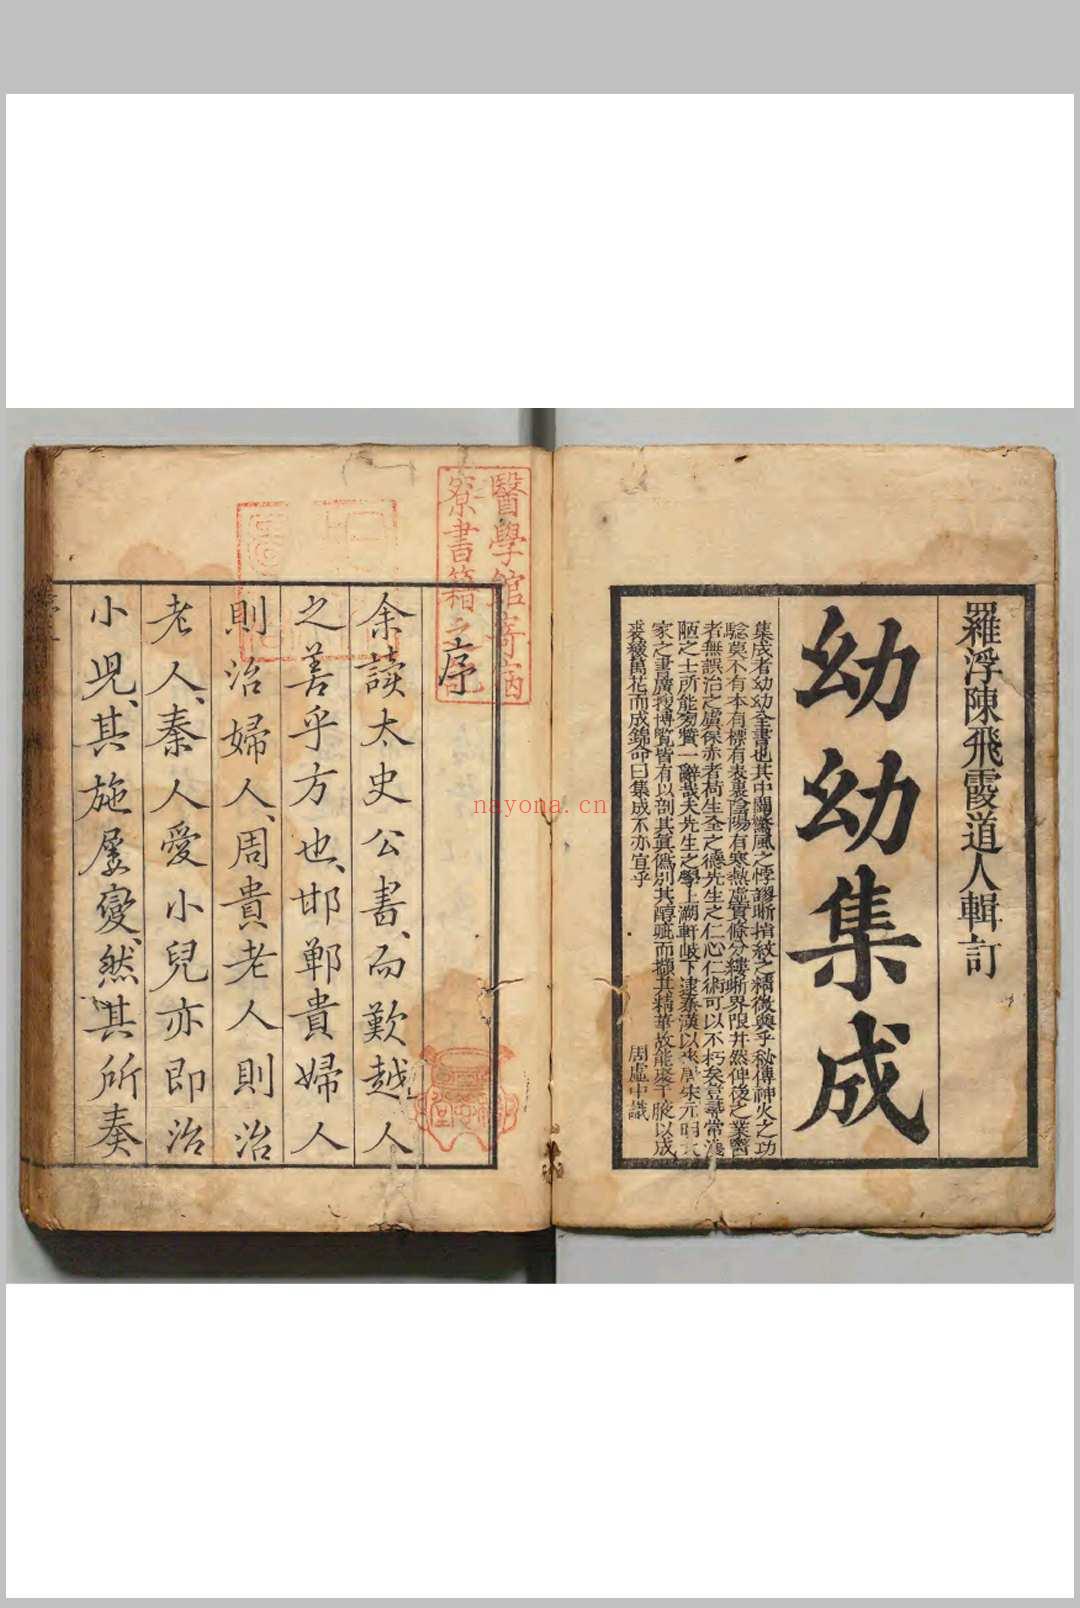 羅浮陳飛霞道人輯訂
幼幼集成
集成者幼幼全書也其中闢驚風之悖謬晰指紋之精微與乎秘傳神火之功
騐莫不有本有標有表裏陰陽有寒熱虛實條分縷晰界限井然俾後之業醫
者無誤治之虞保赤者荷生全之德先生之仁心仁術可以不朽矣豈尋常淺
陋之士所能旁贊一辭哉夫先生之學上溯軒岐下逮秦漢以來唐宋元明大
家之書廣搜博覧皆有以剖其眞僞別其醇疵而擷其精華故能聚千腋以成
裘綴萬花而成錦命曰集成不亦宜乎
周虛中識
序
余讀太史公書而歎越人
之善乎方也邯鄲貴婦人
則治婦人周貴老人則治
老人秦人愛小兒亦即治
小児其施屢變然其所奏
醫學館寄宿
寮書籍之記
nayona.cn